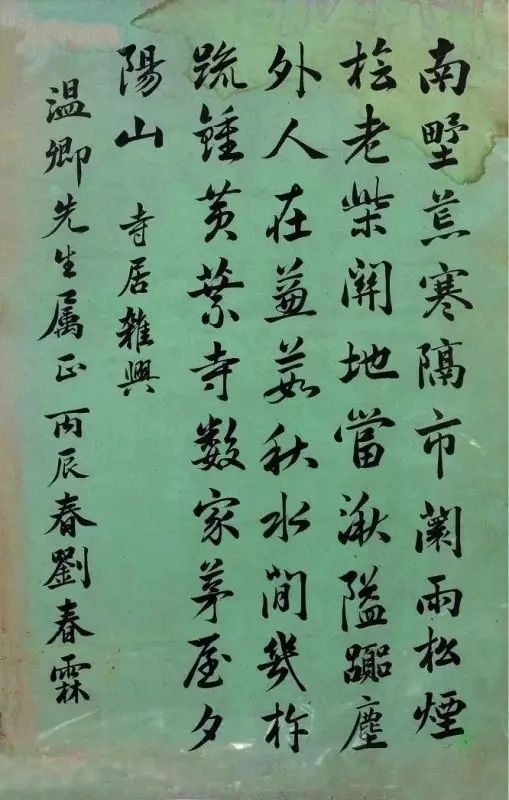 南墅荒寒隔市闌雨松煙
桧老柴關地當湫隘囂塵
外人在蒹葭秋水間幾杵
疏鍾黃葉寺數家茅屋夕
陽山 寺居雜興
温卿先生属正丙辰春劉春霖